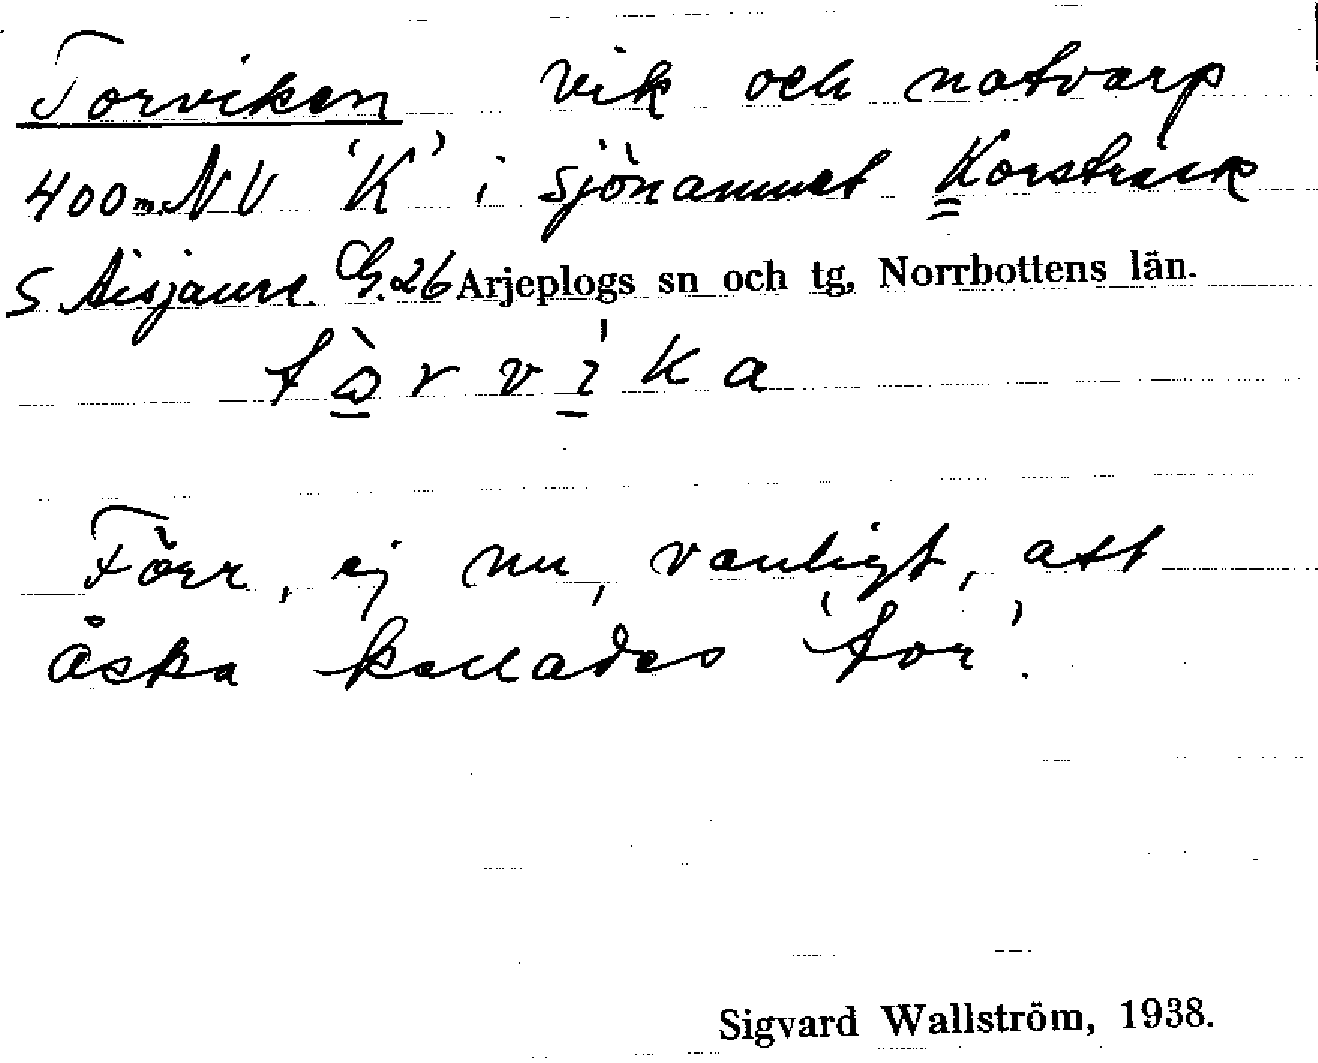 Torviken vik och notvarp
400 m NV 'K' i sjönamnet Korsträsk
S Aisjaure. G. 26 Arjeplogs sn och tg, Norrbottens län.
tòrvika
Förr, ej nu, vanligt, att
åska kallades 'tor'.
Sigvard Wallström, 1938.